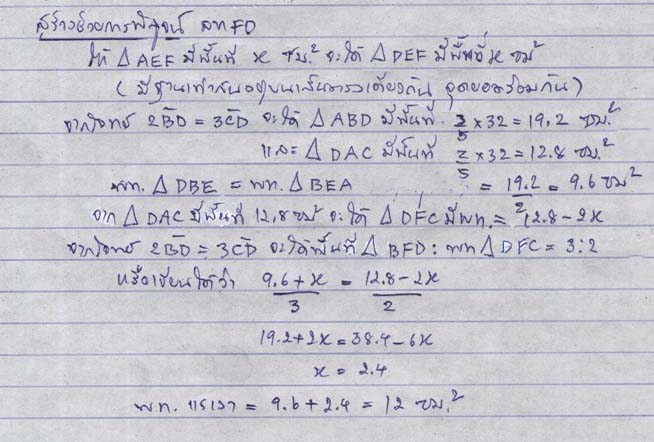 สร้างด้วยการพิสูจน์ ลาก FD
ให้ △ AEF มีพื้นที่ x ซม.² จะได้ △ DEF มีพื้นที่ x ซม²
( มีฐานเท่ากันอยู่บนเส้นตรงเดียวกัน จุดยอดร่วมกัน )
จากโจทย์ 2BD = 3CD จะได้ △ ABD มีพื้นที่. 3/5 × 32 = 19.2 ซม.²
และ △ DAC มีพื้นที่ 2/5 × 32 = 12.8 ซม.²
พท. △ DBE = พท. △ BEA = 19.2/2 = 9.6 ซม²
จาก △ DAC มีพื้นที่ 12.8 ซม² จะได้ △ DFC มีพท. = 12.8 - 2x
จากโจทย์ 2BD = 3CD จะได้พื้นที่ △ BFD : พท △ DFC = 3:2
หรือเขียนได้ว่า 9.6 + x / 3 = 12.8 - 2x / 2
19.2 + 2x = 38.4 - 6x
x = 2.4
พท. แรเงา = 9.6 + 2.4 = 12 ซม.²